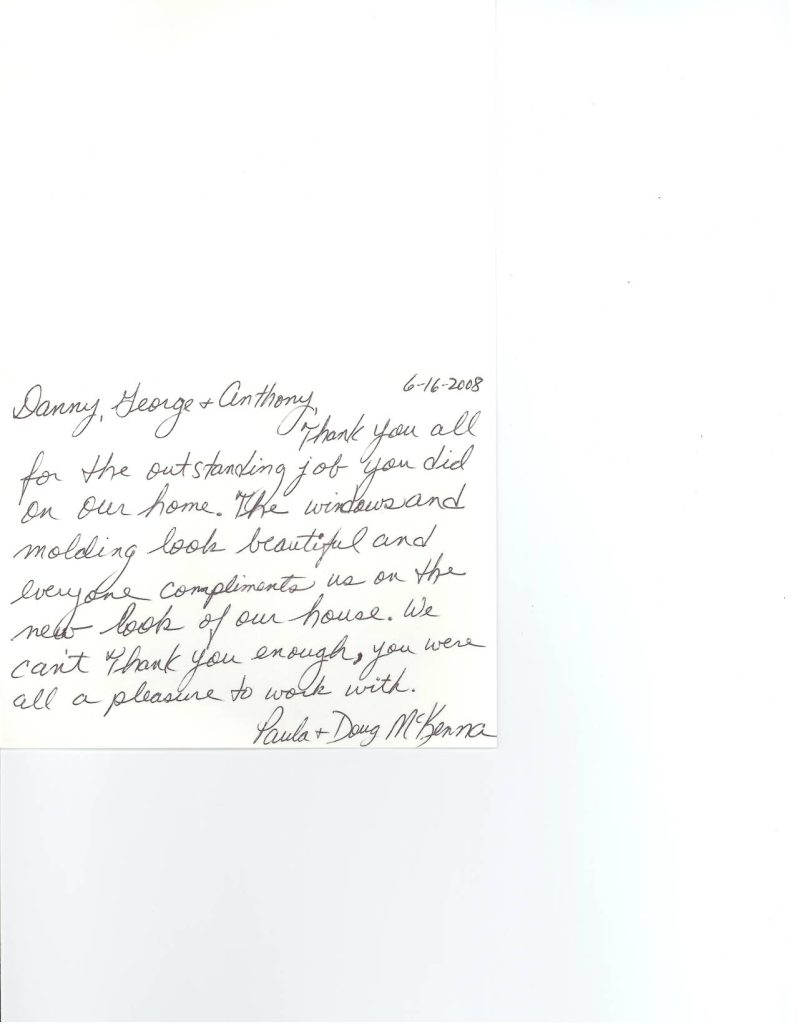 6-16-2008
Danny, George + Anthony,
Thank you all
for the outstanding job you did
on our home. The windows and
molding look beautiful and
everyone compliments us on the
new look of our house. We
can't thank you enough, you were
all a pleasure to work with.
Paula + Doug McKenna